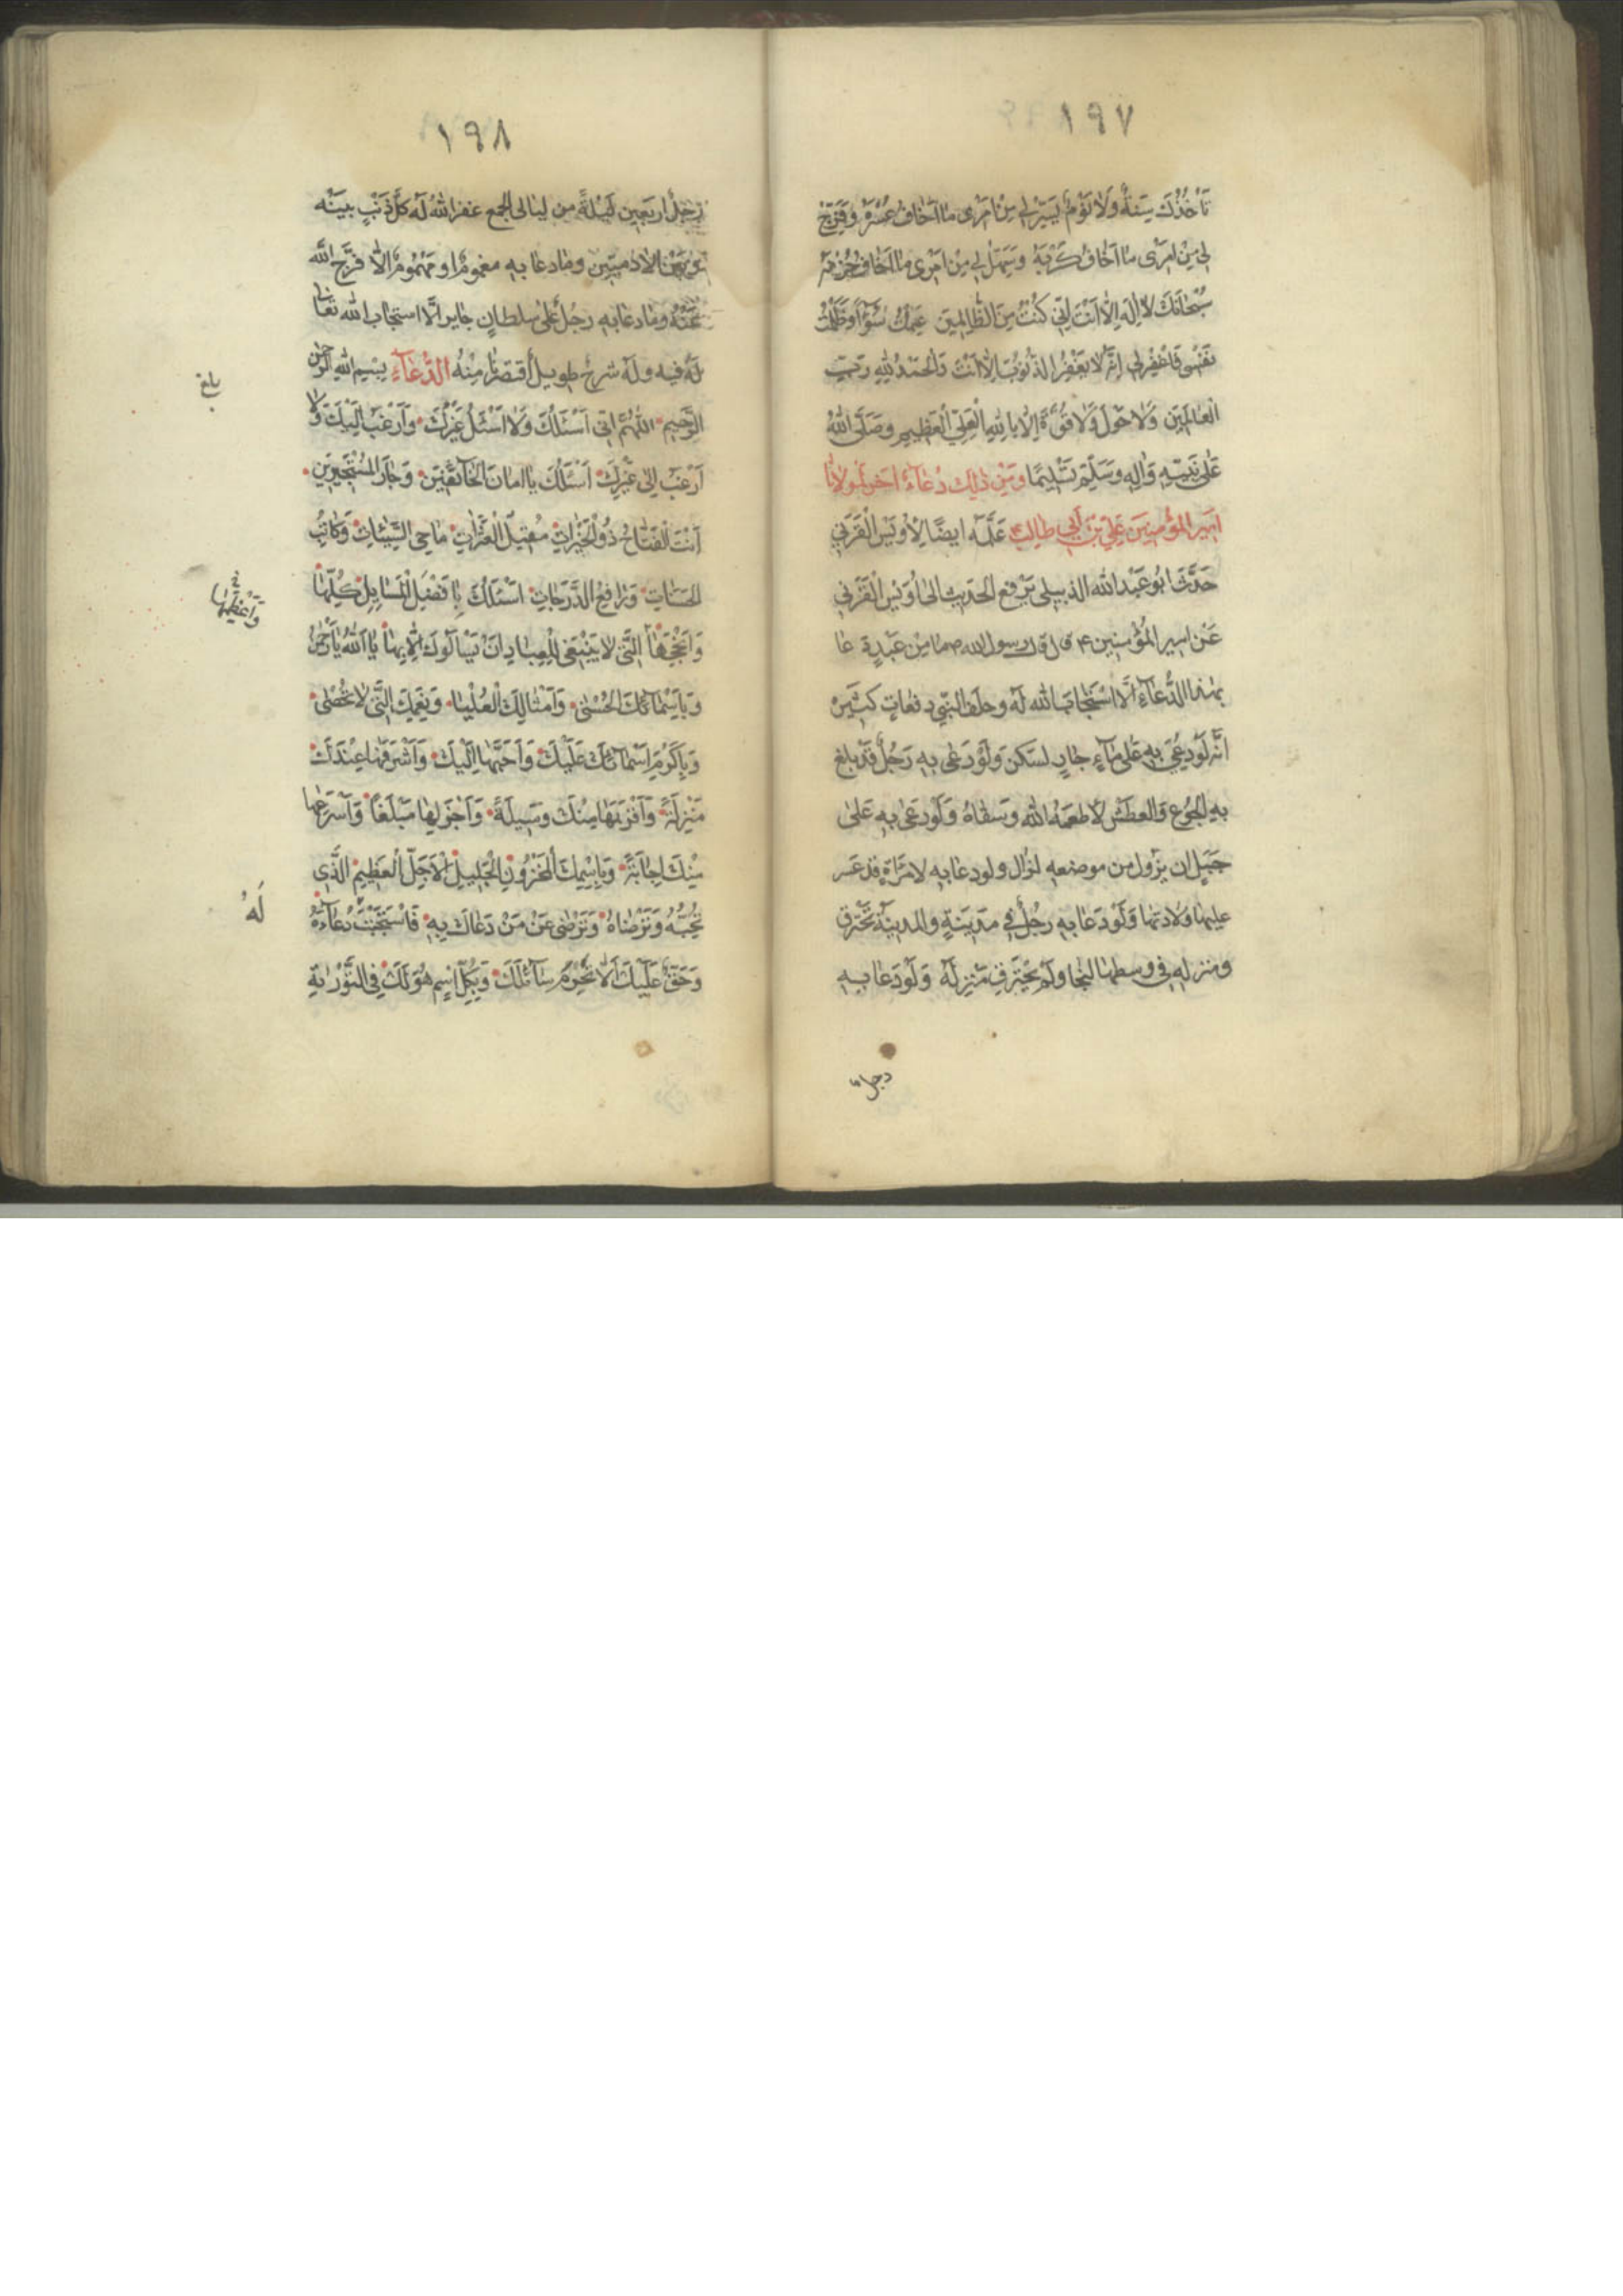 ١٩٧
تَأخُذُكَ سِنَةٌ وَلَا نَوْمٌ يَسِّرْ لِي مِنْ اَمْرِى مَا اَخَافُ عُسْرَهُ وَفَرِّجْ
لِي مِنْ اَمْرِى مَا اَخَافُ كَرْبَهُ وَسَهِّلْ لِي مِنْ اَمْرِى مَا اَخَافُ حُزْنَهُ
سُبْحَانَكَ لَا اِلٰهَ اِلَّا اَنْتَ اِنِّي كُنْتُ مِنَ الظَّالِمِينَ عَمِلْتُ سُوْءًا وَظَلَمْتُ
نَفْسِى فَاغْفِرْ لِي اِنَّهُ لَا يَغْفِرُ الذُّنُوْبَ اِلَّا اَنْتَ وَالْحَمْدُ لِلّٰهِ رَبِّ
الْعَالَمِينَ وَلَا حَوْلَ وَلَا قُوَّةَ اِلَّا بِاللّٰهِ الْعَلِيِّ الْعَظِيمِ وَصَلَّى اللّٰهُ
عَلٰى نَبِيِّهِ وَاٰلِهِ وَسَلَّمَ تَسْلِيمًا وَمِنْ ذٰلِكَ دُعَاءٌ اٰخَرُ لِمَوْلَانَا
اَمِيرِ الْمُؤْمِنِينَ عَلِيِّ بْنِ اَبِي طَالِبٍ عَلَّمَهُ اَيضًا لِاُوَيْسِ الْقَرَنِي
حَدَّثَ اَبُو عَبْدِ اللّٰه الدبيلى يَرْفع الحَدِيث الىٰ اُوَيْس الْقَرَنِي
عَنْ امير الْمُؤْمِنِين ع قال قال رسول اللّٰه ص ما مِنْ عَبْدٍ دعا
بِهٰذا الدُّعَاءِ اِلَّا اسْتَجَابَ اللّٰه لَهُ وحلف النَّبِي دفعاتٍ كَثِيرَةً
انَّه لَو دُعِيَ بِهِ عَلىٰ مَاءٍ جَارٍ لسَكن وَلَوْ دَعٰى بِهِ رَجُلٌ قَدْ بلغ
بِهِ الْجُوْع وَالعطَش لَاَطعَمَهُ اللّٰه وَسَقَاهُ وَلَوْ دَعٰى بِهِ عَلىٰ
جَبَلٍ ان يَزُول من موضعه لزَال ولو دعَا به لامْرَاَةٍ قد عَسر
عليها وِلَادتها وَلَوْ دَعَا به رجُلٌ في مَدِينَةٍ والمدينَة تَحْتَرق
ومنزله في وسطها لنجا ولَمْ يَحْتَرِق مَنْزِلَهُ وَلَوْ دَعَا بِهِ
رجل
١٩٨
رَجلٌ اربَعِين لَيْلَةً من ليالى الجمع غفر اللّٰه لَهُ كلّ ذَنْبٍ بينَه
وبَيْن الاٰدميّين وما دعَا به مغمومٌ او مَهْمُومٌ اِلَّا فرَّج اللَّه
عَنْهُ وما دعَا به رجُلٌ عَلىٰ سلطانٍ جايرٍ اِلَّا استجاب اللّٰه تعالىٰ
لَهُ فيه وله شرحٌ طويلٌ اقتصَرنا مِنْهُ الدُّعَاءُ بِسْمِ اللّٰهِ الرَّحْمٰنِ
الرَّحِيمِ اَللّٰهُمَّ اِنِّى اَسْئَلُكَ وَلَا اَسْئَلُ غَيْرَكَ وَاَرْغَبُ اِلَيْكَ وَلَا
اَرْغَبُ اِلىٰ غَيْرِكَ اَسْئَلُكَ يَا اَمَانَ الْخَائِفِينَ وَجَارَ الْمُسْتَجِيرِينَ
اَنْتَ الْفَتَّاحُ ذُو الْخَيْرَاتِ مُقِيلُ الْعَثَرَاتِ مَاحِى السَّيِّئَاتِ وَكَاتِبُ
الْحَسَنَاتِ وَرَافِعُ الدَّرَجَاتِ اَسْئَلُكَ بِاَفْضَلِ الْمَسَائِلِ كُلِّهَا
وَاَنْجَحِهَا الَّتِى لَا يَنْبَغِى لِلْعِبَادِ اَنْ يَسْاَلُوكَ اِلَّا بِهَا يَا اَللّٰهُ يَا رَحْمٰنُ
وَبِاَسْمَائِكَ الْحُسْنٰى وَاَمْثَالِكَ الْعُلْيَا وَنِعَمِكَ الَّتِى لَا تُحْصٰى
وَبِاَكْرَمِ اَسْمَائِكَ عَلَيْكَ وَاَحَبِّهَا اِلَيْكَ وَاَشْرَفِهَا عِنْدَكَ
مَنْزِلَةً وَاَقْرَبِهَا مِنْكَ وَسِيلَةً وَاَجْزَلِهَا مَبْلَغًا وَاَسْرَعِهَا
مِنْكَ اِجَابَةً وَبِاسْمِكَ الْمَخْزُونِ الْجَلِيلِ الْاَجَلِّ الْعَظِيمِ الَّذِى
تُحِبُّهُ وَتَرْضَاهُ وَتَرْضٰى عَنْ مَنْ دَعَاكَ بِهِ فَاسْتَجَبْتَ دُعَاءَهُ
وَحَقٌّ عَلَيْكَ اَلَّا تَحْرِمَ سَائِلَكَ وَبِكُلِّ اسْمٍ هُوَ لَكَ فِى التَّوْرٰيةِ
بلغ
وَاَعْظَمِهَا
لَهُ